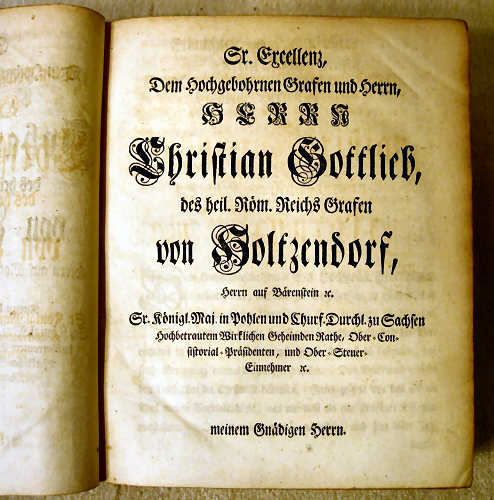 Sr. Excellenz,
Dem Hochgebohrnen Grafen und Herrn,
HERRN
Christian Gottlieb,
des heil. Röm. Reichs Grafen
von Holtzendorf,
Herrn auf Bärenstein ꝛc.
Sr. Königl. Maj. in Pohlen und Churf. Durchl. zu Sachsen
Hochbetrautem Wirklichen Geheimden Rathe, Ober-Con-
sistorial-Präsidenten, und Ober-Steuer-
Einnehmer ꝛc.
meinem Gnädigen Herrn.